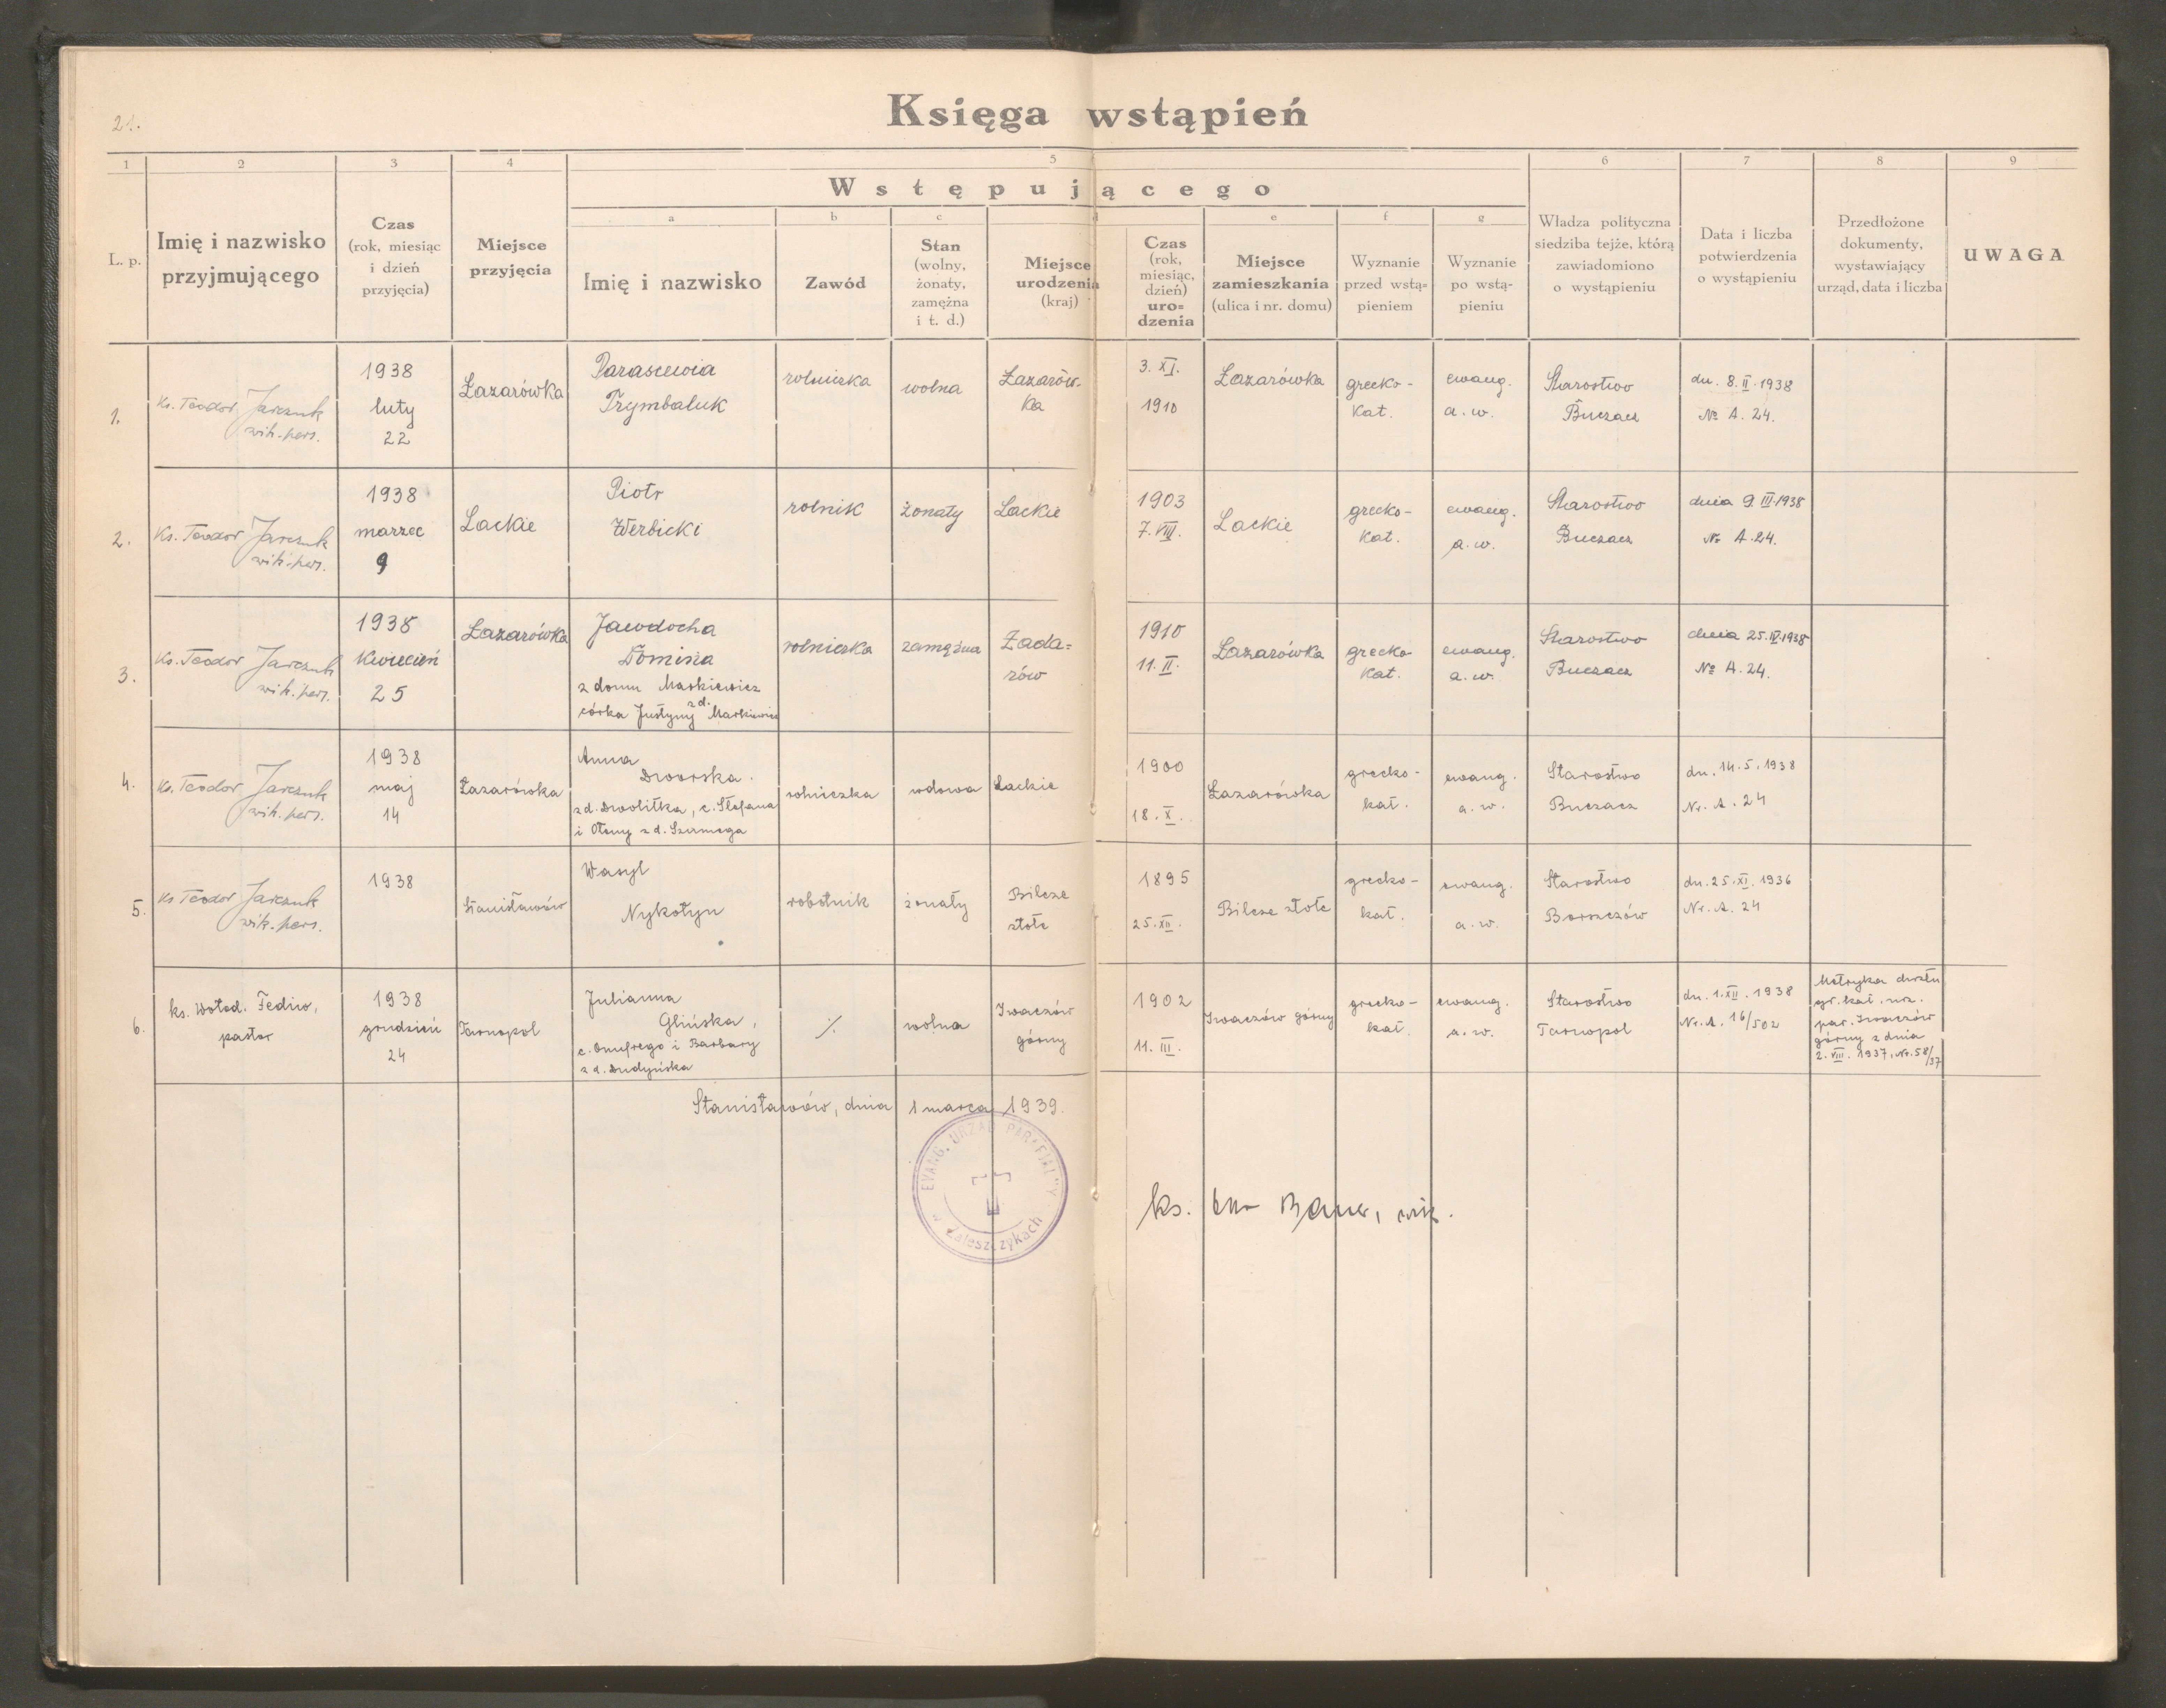 21.
Księga wstąpień
1 2 3 4 5 6 7 8 9
Wstępującego
a b c d e f g
L. p.
Imię i nazwisko
przyjmującego
Czas
(rok, miesiąc
i dzień
przyjęcia)
Miejsce
przyjęcia
Imię i nazwisko
Zawód
Stan
(wolny,
żonaty,
zamężna
i t. d.)
Miejsce
urodzenia
(kraj)
Czas
(rok,
miesiąc,
dzień)
uro=
dzenia
Miejsce
zamieszkania
(ulica i nr. domu)
Wyznanie
przed wstą=
pieniem
Wyznanie
po wstą-
pieniu
Władza polityczna
siedziba tejże, którą
zawiadomiono
o wystąpieniu
Data i liczba
potwierdzenia
o wystąpieniu
Przedłożone
dokumenty,
wystawiający
urząd, data i liczba
UWAGA
1.
Ks. Teodor Jarczuk
wik. pers.
1938
luty
22
Łazarówka
Parascewia
Trymbaluk
rolniczka
wolna
Łazarów-
ka
3. XI.
1910
Łazarówka
grecko-
kat.
ewang.
a. w.
Starostwo
Buczacz
dn. 8. II. 1938
№ A. 24.
2.
Ks. Teodor Jarczuk
wik. pers.
1938
marzec
9
Lackie
Piotr
Werbicki
rolnik
żonaty
Lackie
1903
7. VIII.
Lackie
grecko-
kat.
ewang.
a. w.
Starostwo
Buczacz
dnia 9. III. 1938
№ A. 24.
3.
Ks. Teodor Jarczuk
wik. pers.
1938
kwiecień
25
Łazarówka
Jawdocha
Domiña
z domu Markiewicz
córka Justyny z d. Markiewicz
rolniczka
zamężna
Zada=
rów
1910
11. II.
Łazarówka
grecko-
kat.
ewang.
a. w.
Starostwo
Buczacz
dnia 25. IV. 1938
№ A. 24.
4.
Ks. Teodor Jarczuk
wik. pers.
1938
maj
14
Łazarówka
Anna
Dworska.
z d. Dwolitka, c. Stefana
i Oleny z d. Szermega
rolniczka
wdowa
Lackie
1900
18. X.
Łazarówka
grecko-
kat.
ewang.
a. w.
Starostwo
Buczacz
dn. 14. 5. 1938
Nr. A. 24
5.
Ks Teodor Jarczuk
wik. pers.
1938
Stanisławów
Wasyl
Nykołyn
robotnik
żonaty
Bilcze
złote
1895
25. XII.
Bilcze złote
grecko-
kat.
ewang.
a. w.
Starostwo
Borszczów
dn. 25. XI. 1936
Nr. A. 24
6.
ks. Wołod. Fediw,
pastor
1938
grudzień
24
Tarnopol
Julianna
Glińska,
c. Onufrego i Barbary
z d. Dudyńska
./.
wolna
Iwaczów
górny
1902
11. III.
Iwaczów górny
grecko-
kat.
ewang.
a. w.
Starostwo
Tarnopol
dn. 1. XII. 1938
Nr. A. 16/502
Metryka chrztu
gr. kat. urz.
par. Iwaczów
górny z dnia
2. VIII. 1937, Nr. 58/37
Stanisławów, dnia 1 marca 1939.
EVANG. URZĄD PARAFJALNY
w Zaleszczykach
ks. Bauer, wik.